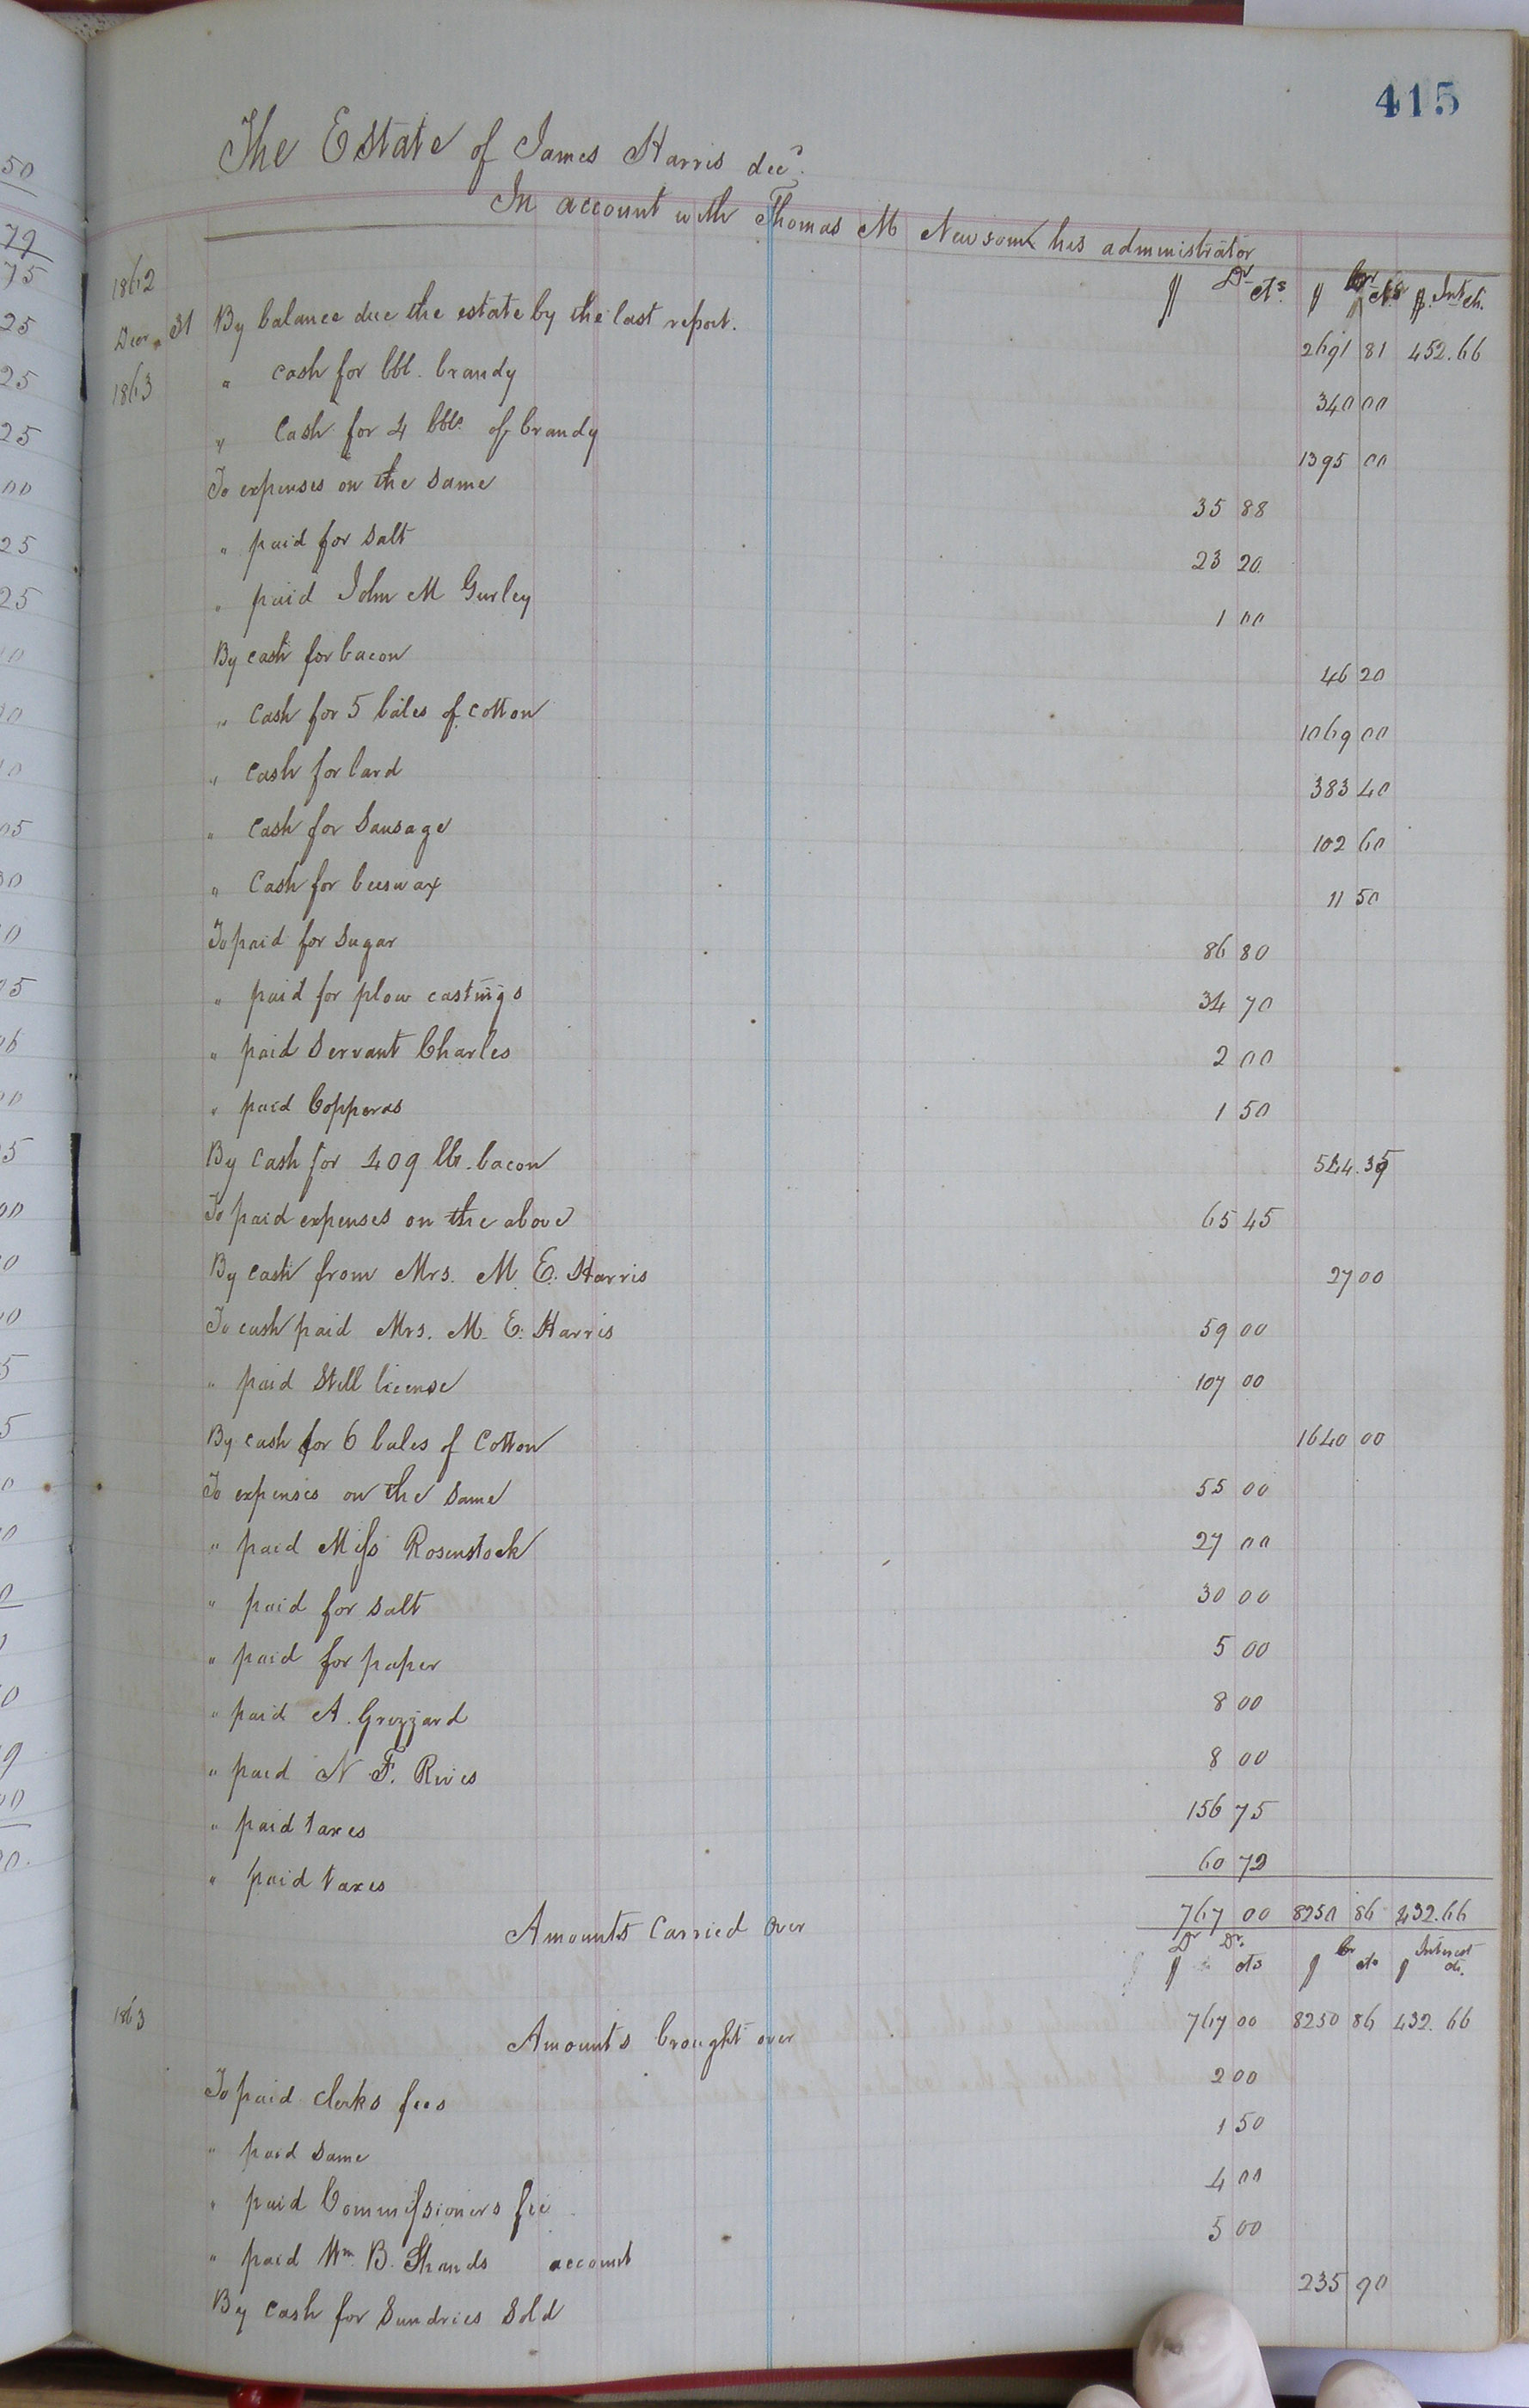 415
The Estate of James Harris decd.
In account with Thomas M Newsom his administrator
1862 $ Dr cts $ Cr cts $ Int cts.
Decr 31 By balance due the estate by the last report. 2691 81 452.66
1863 " cash for bbl. brandy 340 00
" Cash for 4 bbls of brandy 1395 00
To expenses on the same 35 88
" paid for salt 23 20
" paid John M Gurley 1 00
By cash for bacon 46 20
" Cash for 5 bales of cotton 1069 00
" Cash for lard 383 40
" Cash for Sausage 102 60
" Cash for beeswax 11 50
To paid for sugar 86 80
" paid for plow castings 34 70
" paid Servant Charles 2 00
" paid Copperas 1 50
By Cash for 409 lbs. bacon
To paid expenses on the above 65 45
By cash from Mrs. M. E. Harris 27 00
To cash paid Mrs. M. E. Harris 59 00
" paid Still license 107 00
By cash for 6 bales of Cotton 1640 00
To expenses on the same 55 00
" paid Miss Rosenstock 27 00
" paid for salt 30 00
" paid for paper 5 00
" paid A. Grizzard 8 00
" paid N. F. Rives 8 00
" paid taxes 156 75
" paid taxes 60 72
Amounts Carried Over 767 00 8250 86 432.66
$ Dr Dr. cts $ Cr cts $ Interest cts.
1863 Amounts brought over 767 00 8250 86 432.66
To paid Clerks fees 2 00
" paid same 1 50
" paid Commissioners fee 4 00
" paid Wm. B. Shands account 5 00
By Cash for Sundries Sold 235 90
50
79
75
25
25
25
00
25
25